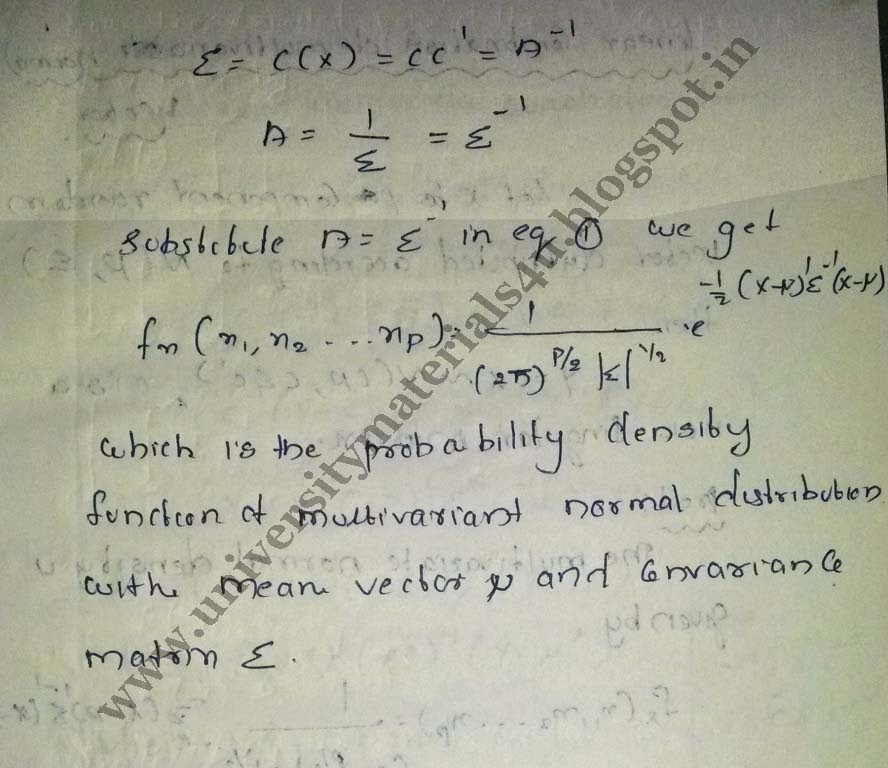 Σ = C(X) = CC' = A⁻¹
A = 1/Σ = Σ⁻¹
Substitute A = Σ⁻¹ in eq ① we get
fx (x1, x2 ... xp) = 1/((2π)^(p/2) |Σ|^(1/2)) · e^(-1/2 (x-μ)' Σ⁻¹ (x-μ))
which is the probability density
function of multivariant normal distribution
with mean vector μ and Convariance
matrix Σ.
www.universitymaterials4u.blogspot.in